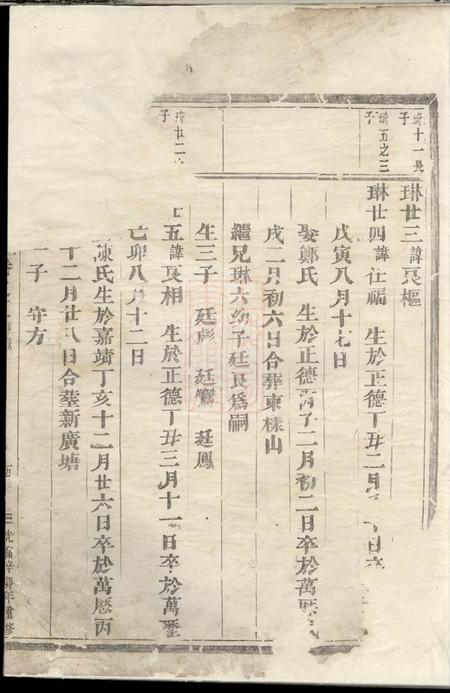 琦十一長
子
琳廿三諱良樞
琦五之三
子
琳廿四諱仕福 生於正德丁丑二月
戊寅八月十七日
娶鄭氏 生於正德丙子二月初二日卒於萬曆
戌二月初六日合葬東樣山
繼兄琳六幼子廷良為嗣
生三子 廷彪 廷鸞 廷鳳
廿二
子
五諱良相 生於正德丁丑三月十一日卒於萬曆
己卯八月十二日
陳氏生於嘉靖丁亥十二月廿六日卒於萬曆丙
十二月廿八日合葬新廣塘
一子 守方
五
光緒辛卯年重修